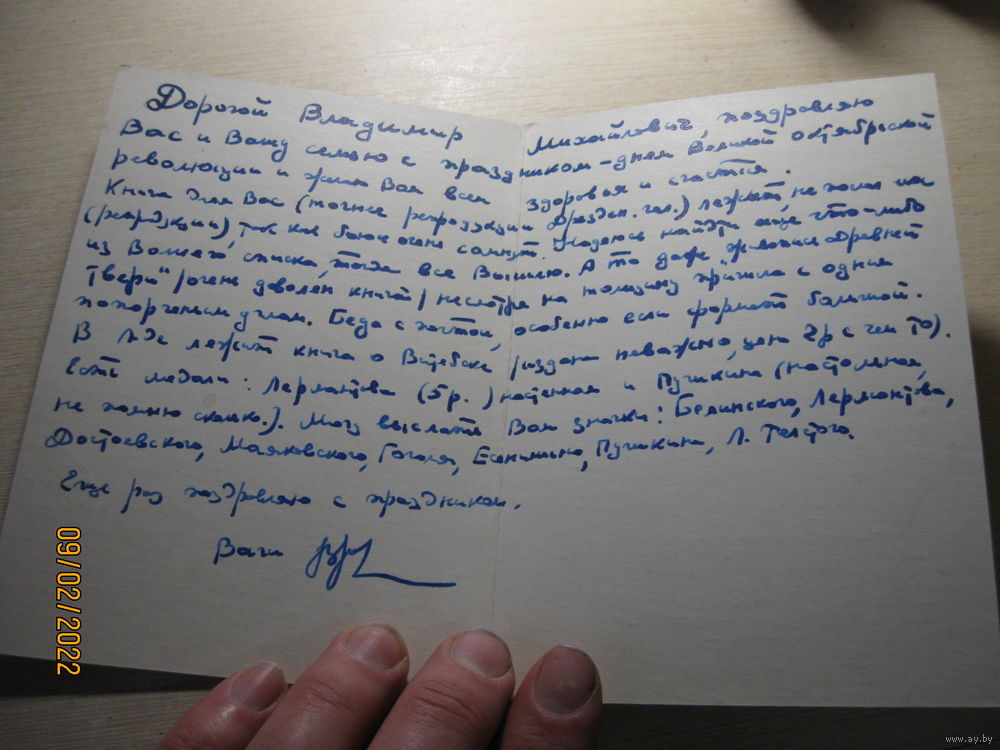 Дорогой Владимир Михайлович, поздравляю
Вас и Вашу семью с праздником – днем Великой Октябрьской
революции и желаю Вам всем здоровья и счастья.
Книга для Вас (точнее репродукции Дрезден. гал.) лежит, не послал их
(репродукции), т.к. как боюсь очень сомнут. Надеюсь найти еще что-либо
из Вашего списка, тогда все Вышлю. А то даже "живопись древней
Твери" /очень доволен книгой/ несмотря на толщину пришла с одним
попорченым углом. Беда с почтой, особенно если формат большой.
В лежит книга о Витебске /издана неважно, цена 2р с чем то).
Есть медали: Лермонтова (5р.) настенная и Пушкина (настольная,
не помню сколько.). Могу выслать Вам значки: Белинского, Лермонтова,
Достоевского, Маяковского, Гоголя, Есенина, Пушкина, Л. Толстого.
Еще раз поздравляю с праздником.
Ваш
09/02/2022
www.ay.by